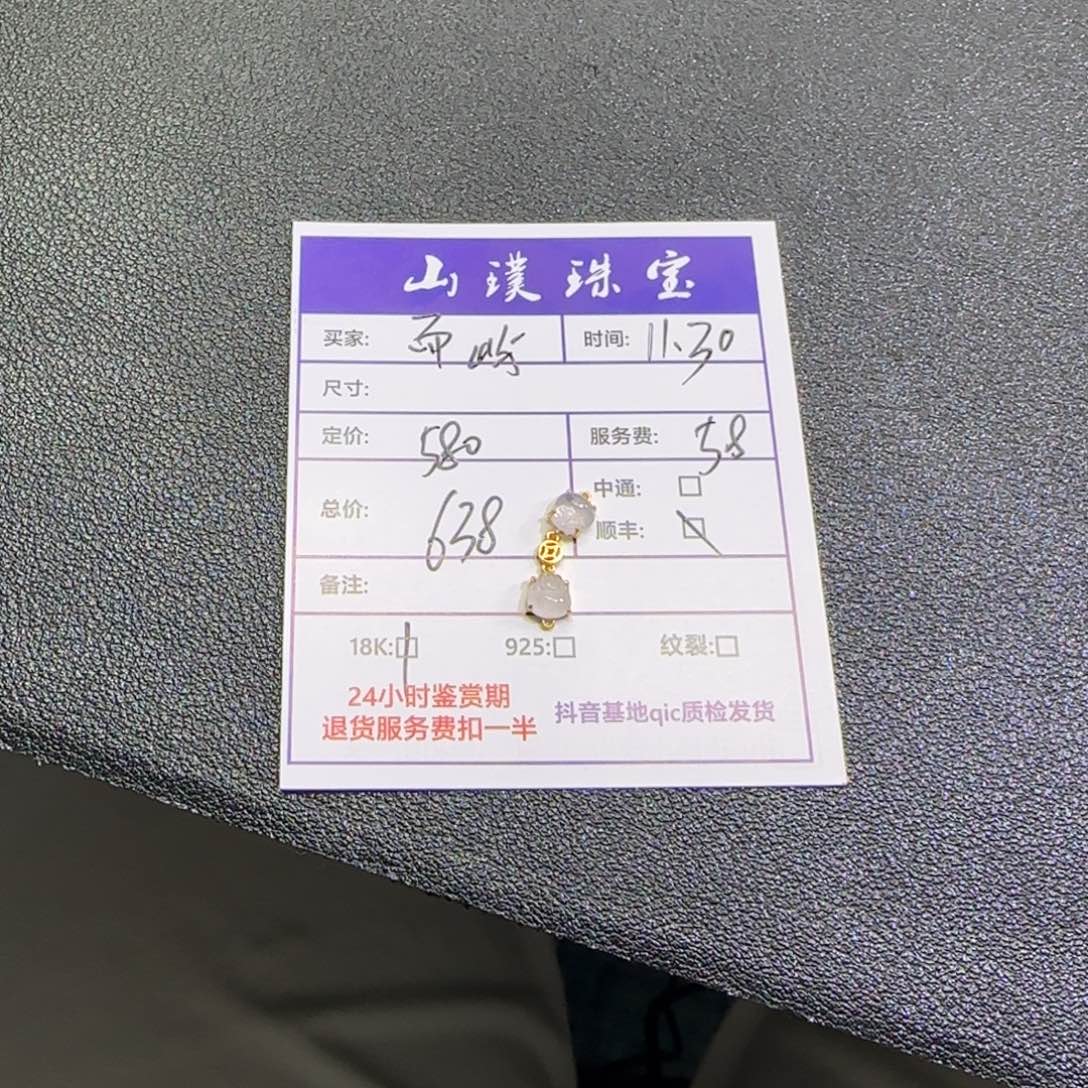 山璞珠宝
买家: 时间: 11.30
尺寸:
定价: 580 服务费: 58
总价: 638 中通: □
顺丰: □
备注:
18K:□ 925:□ 纹裂:□
24小时鉴赏期
退货服务费扣一半 抖音基地qic质检发货